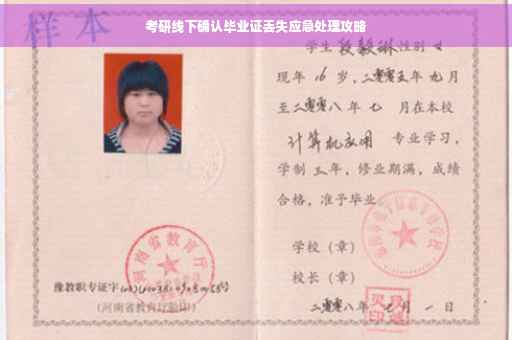 考研线下确认毕业证丢失应急处理攻略
样本
学生 段毅琳 性别 女
现年 16 岁，二零零五年 九 月
至二零零八年 七 月在本校
计算机应用 专业学习，
学制 三 年，修业期满，成绩
合格，准予毕业。
学校（章）
校长（章）
二零零八年 月 一 日
河南省教育厅
豫教职专证字
（河南省教育厅验印）